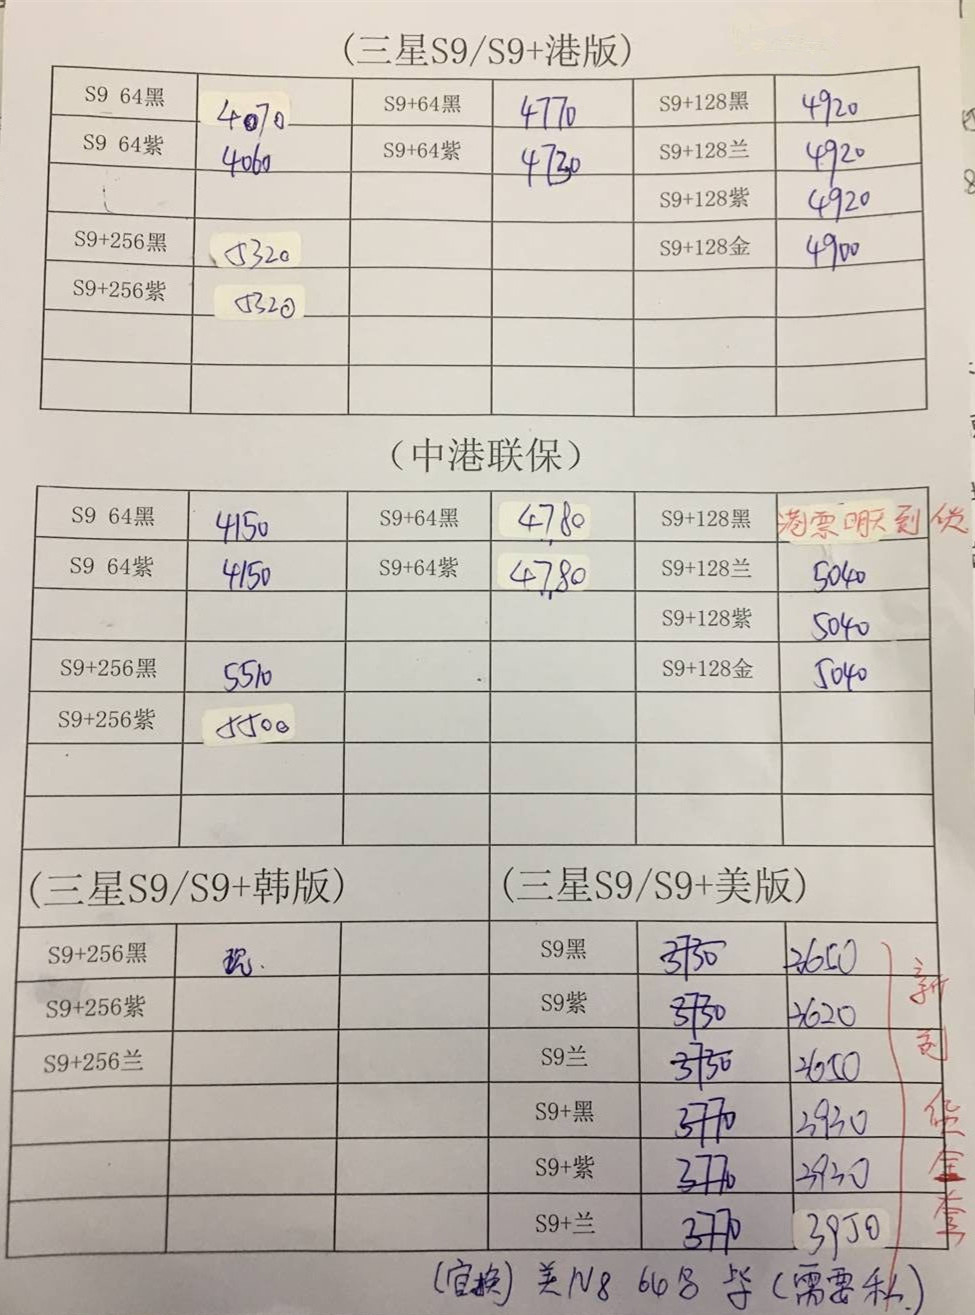 (三星S9/S9+港版)
S9 64黑 4070 S9+64黑 4770 S9+128黑 4920
S9 64紫 4060 S9+64紫 4730 S9+128兰 4920
S9+128紫 4920
S9+256黑 5320 S9+128金 4900
S9+256紫 5320
(中港联保)
S9 64黑 4150 S9+64黑 4780 S9+128黑 港票明天到货
S9 64紫 4150 S9+64紫 4780 S9+128兰 5040
S9+128紫 5040
S9+256黑 5510 S9+128金 5040
S9+256紫 5500
(三星S9/S9+韩版) (三星S9/S9+美版)
S9+256黑 现. S9黑 3730 3650
S9+256紫 S9紫 3730 3620
S9+256兰 S9兰 3730 3650
S9+黑 3770 3930
S9+紫 3770 3930
S9+兰 3770 3950
新到货全套
(官换) 美N8 64G (需要私)